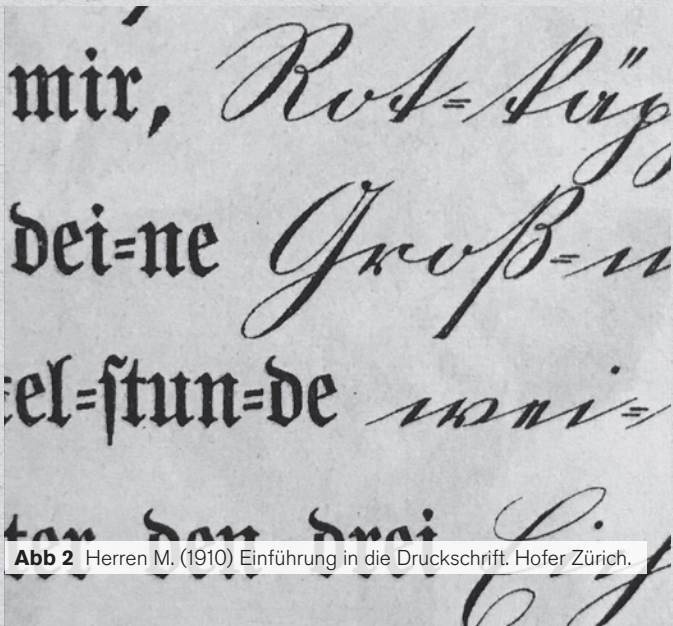 mir, Rot=käp
dei=ne Groß=m
el=ſtun=de wei=
ter den drei Eich
Abb 2 Herren M. (1910) Einführung in die Druckschrift. Hofer Zürich.